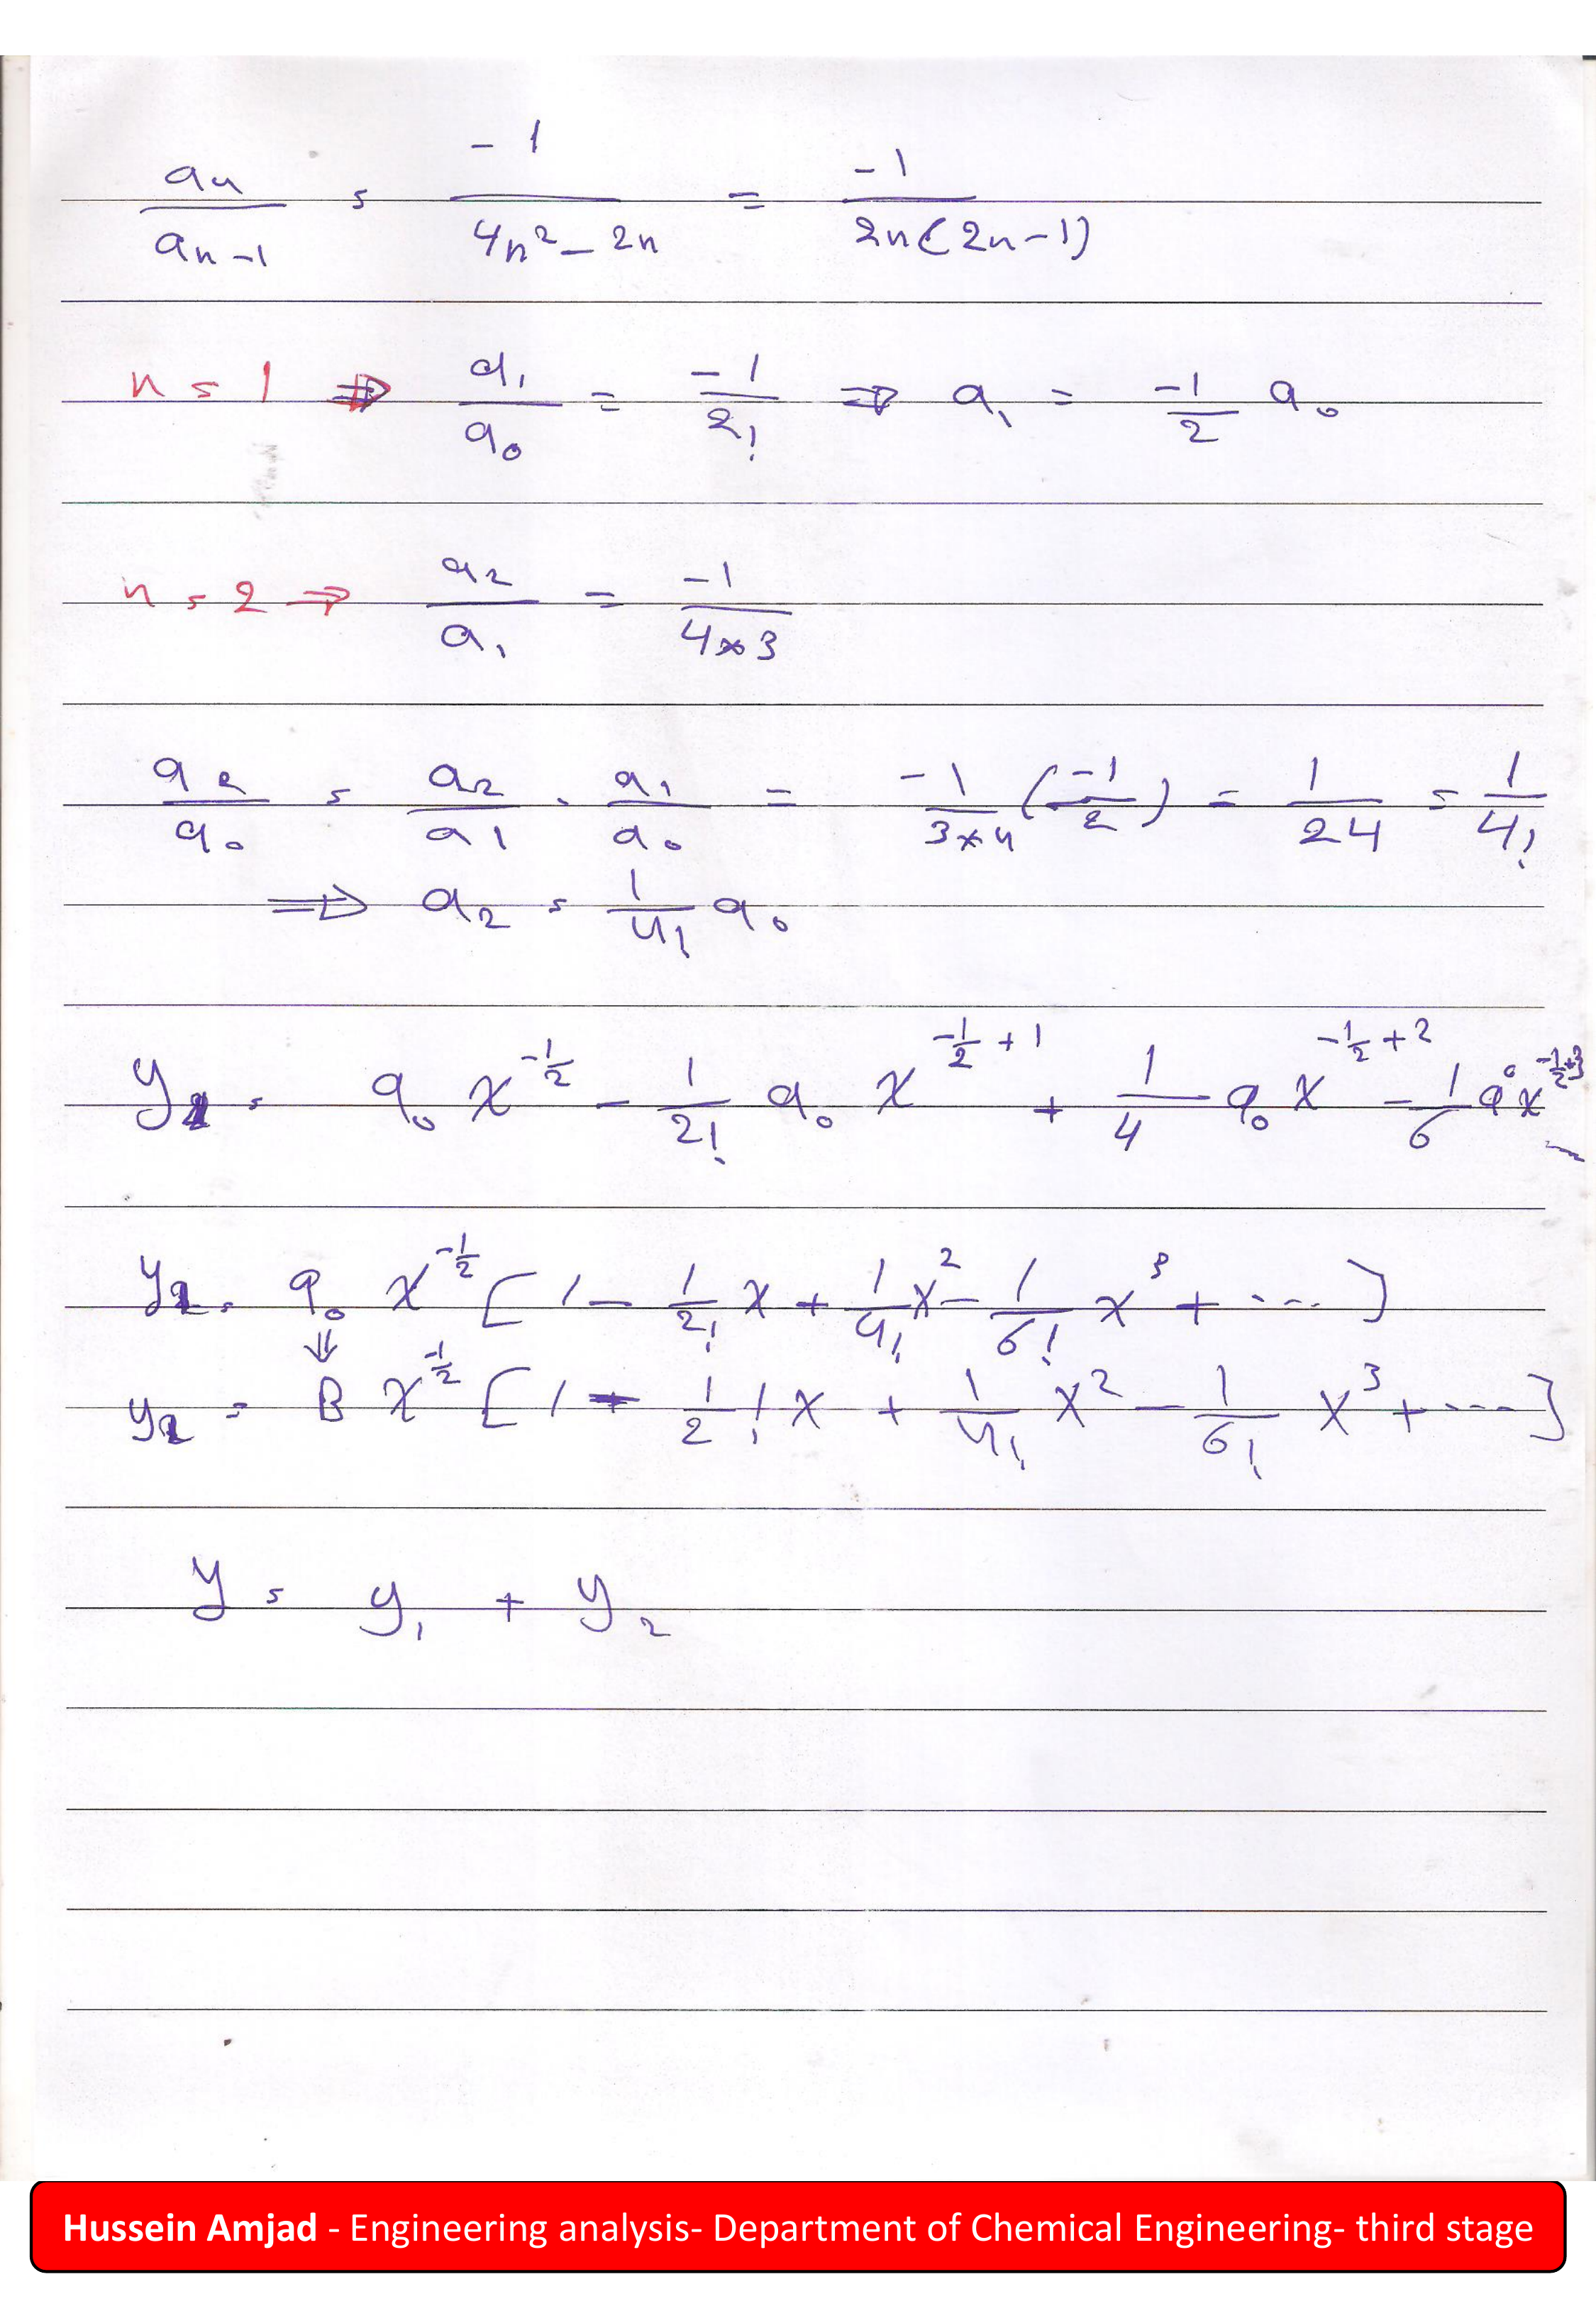 aₙ/aₙ₋₁ = -1/(4n² - 2n) = -1/(2n(2n-1))
n = 1 ⇒ a₁/a₀ = -1/2! ⇒ a₁ = -1/2 a₀
n = 2 ⇒ a₂/a₁ = -1/(4×3)
a₂/a₀ = a₂/a₁ . a₁/a₀ = -1/(3×4) (-1/2) = 1/24 = 1/4!
⇒ a₂ = 1/4! a₀
y₂ = a₀ x^(-1/2) - 1/2! a₀ x^(-1/2 + 1) + 1/4 a₀ x^(-1/2 + 2) - 1/6 a₀ x^(-1/2+3)
y₂ = a₀ x^(-1/2) [1 - 1/2! x + 1/4! x² - 1/6! x³ + ...]
⇓
y₂ = B x^(-1/2) [1 - 1/2! x + 1/4! x² - 1/6! x³ + ....]
y = y₁ + y₂
Hussein Amjad - Engineering analysis- Department of Chemical Engineering- third stage